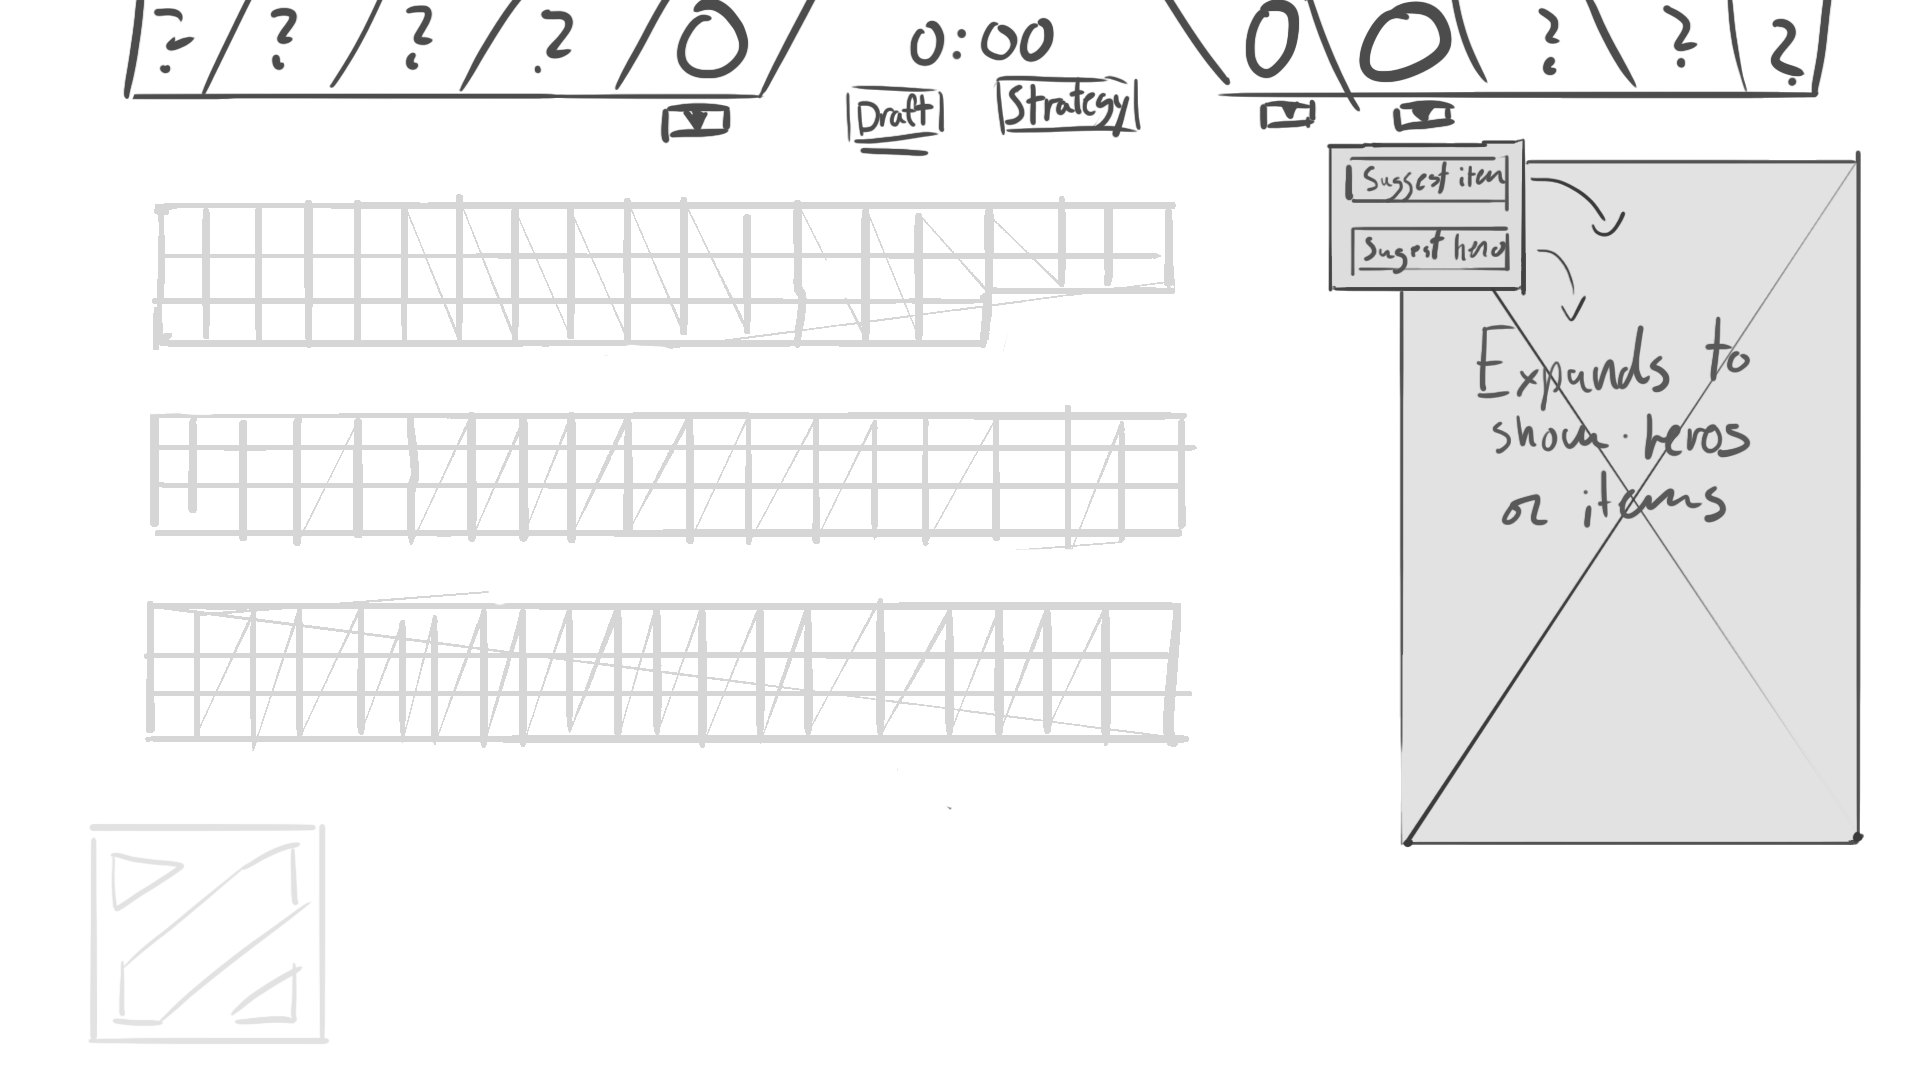 ? ? ? ? O 0:00 O O ? ? ?
Draft Strategy
Suggest item
Sugest hero
Expands to
show heros
or items